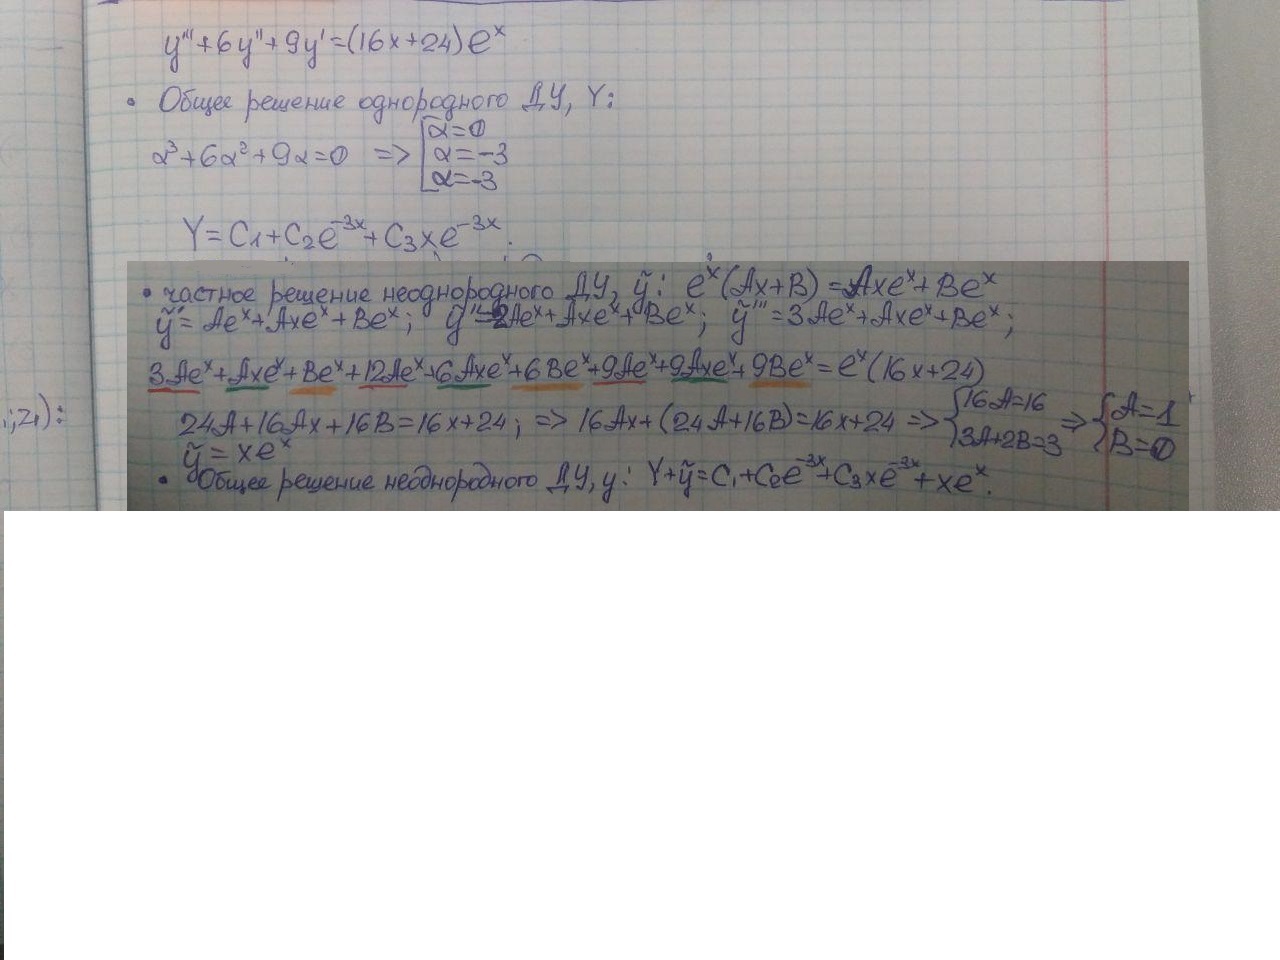 y''' + 6y'' + 9y' = (16x + 24) eˣ
• Общее решение однородного ДУ, Y:
α³ + 6α² + 9α = 0 => [α = 0
α = -3
α = -3
Y = C₁ + C₂e⁻³ˣ + C₃xe⁻³ˣ.
• частное решение неоднородного ДУ, ỹ: eˣ(Ax + B) = Axeˣ + Beˣ
ỹ' = Aeˣ + Axeˣ + Beˣ; ỹ'' = 2Aeˣ + Axeˣ + Beˣ; ỹ''' = 3Aeˣ + Axeˣ + Beˣ;
3Aeˣ + Axeˣ + Beˣ + 12Aeˣ + 6Axeˣ + 6Beˣ + 9Aeˣ + 9Axeˣ + 9Beˣ = eˣ(16x + 24)
24A + 16Ax + 16B = 16x + 24; => 16Ax + (24A + 16B) = 16x + 24 => {16A = 16 => {A = 1
3A + 2B = 3 B = 0
ỹ = xeˣ
• Общее решение неоднородного ДУ, y: Y + ỹ = C₁ + C₂e⁻³ˣ + C₃xe⁻³ˣ + xeˣ.